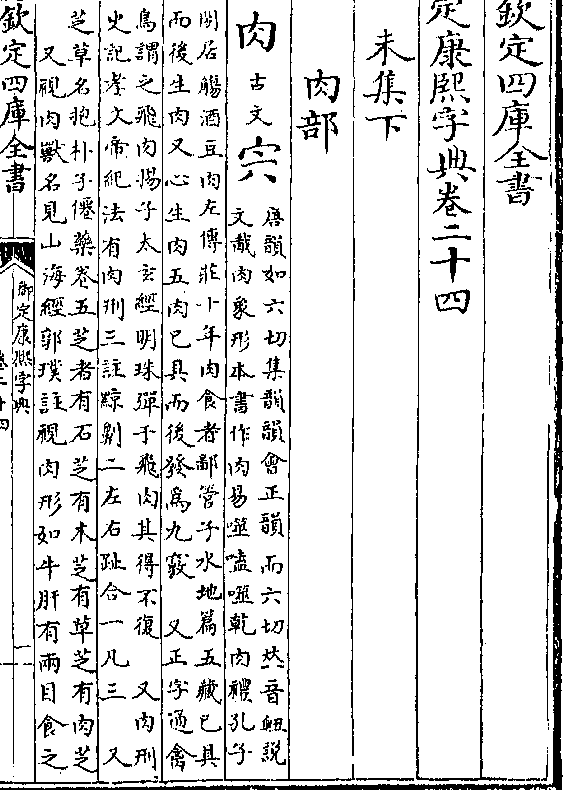 欽定四庫全書
定康熙字典卷二十四
未集下
肉部
肉
古文
宍
唐韻如六切集韻韻會正韻而六切𠀤音衄說
文胾肉象形本書作肉易噬嗑噬乾肉禮孔子
閒居觴酒豆肉左傳莊十年肉食者鄙管子水地篇五藏已具
而後生肉又心生肉五肉已具而後發爲九竅 又正字通禽
鳥謂之飛肉揚子太玄經明珠彈于飛肉其得不復 又肉刑
史記孝文帝紀法有肉刑三註黥劓二左右趾合一凡三 又
芝草名抱朴子僊藥卷五芝者有石芝有木芝有草芝有肉芝
又視肉獸名見山海經郭璞註視肉形如牛肝有兩目食之
欽定四庫全書
御定康熙字典
卷二十四
一